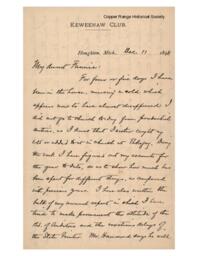 Copper Range Historical Society
KEWEENAW CLUB.
Houghton, Mich. Dec. 11 1898
My dearest Fannie:
For four or five days I have
been in the house, nursing a cold which
appears now to have almost disappeared. I
did not go to church to-day from prudential
motives, as I think that I
in church at
the week I have figured out my accounts for
the year to date, so as to show how much has
been spent for different things, as compared
with previous years. I have also written the
bulk of my annual report in which I have
tried to make permanent the attitude of the
Bd. of Auditors and the vexatious delays of
the State Printer. Mr. Hammond says he will